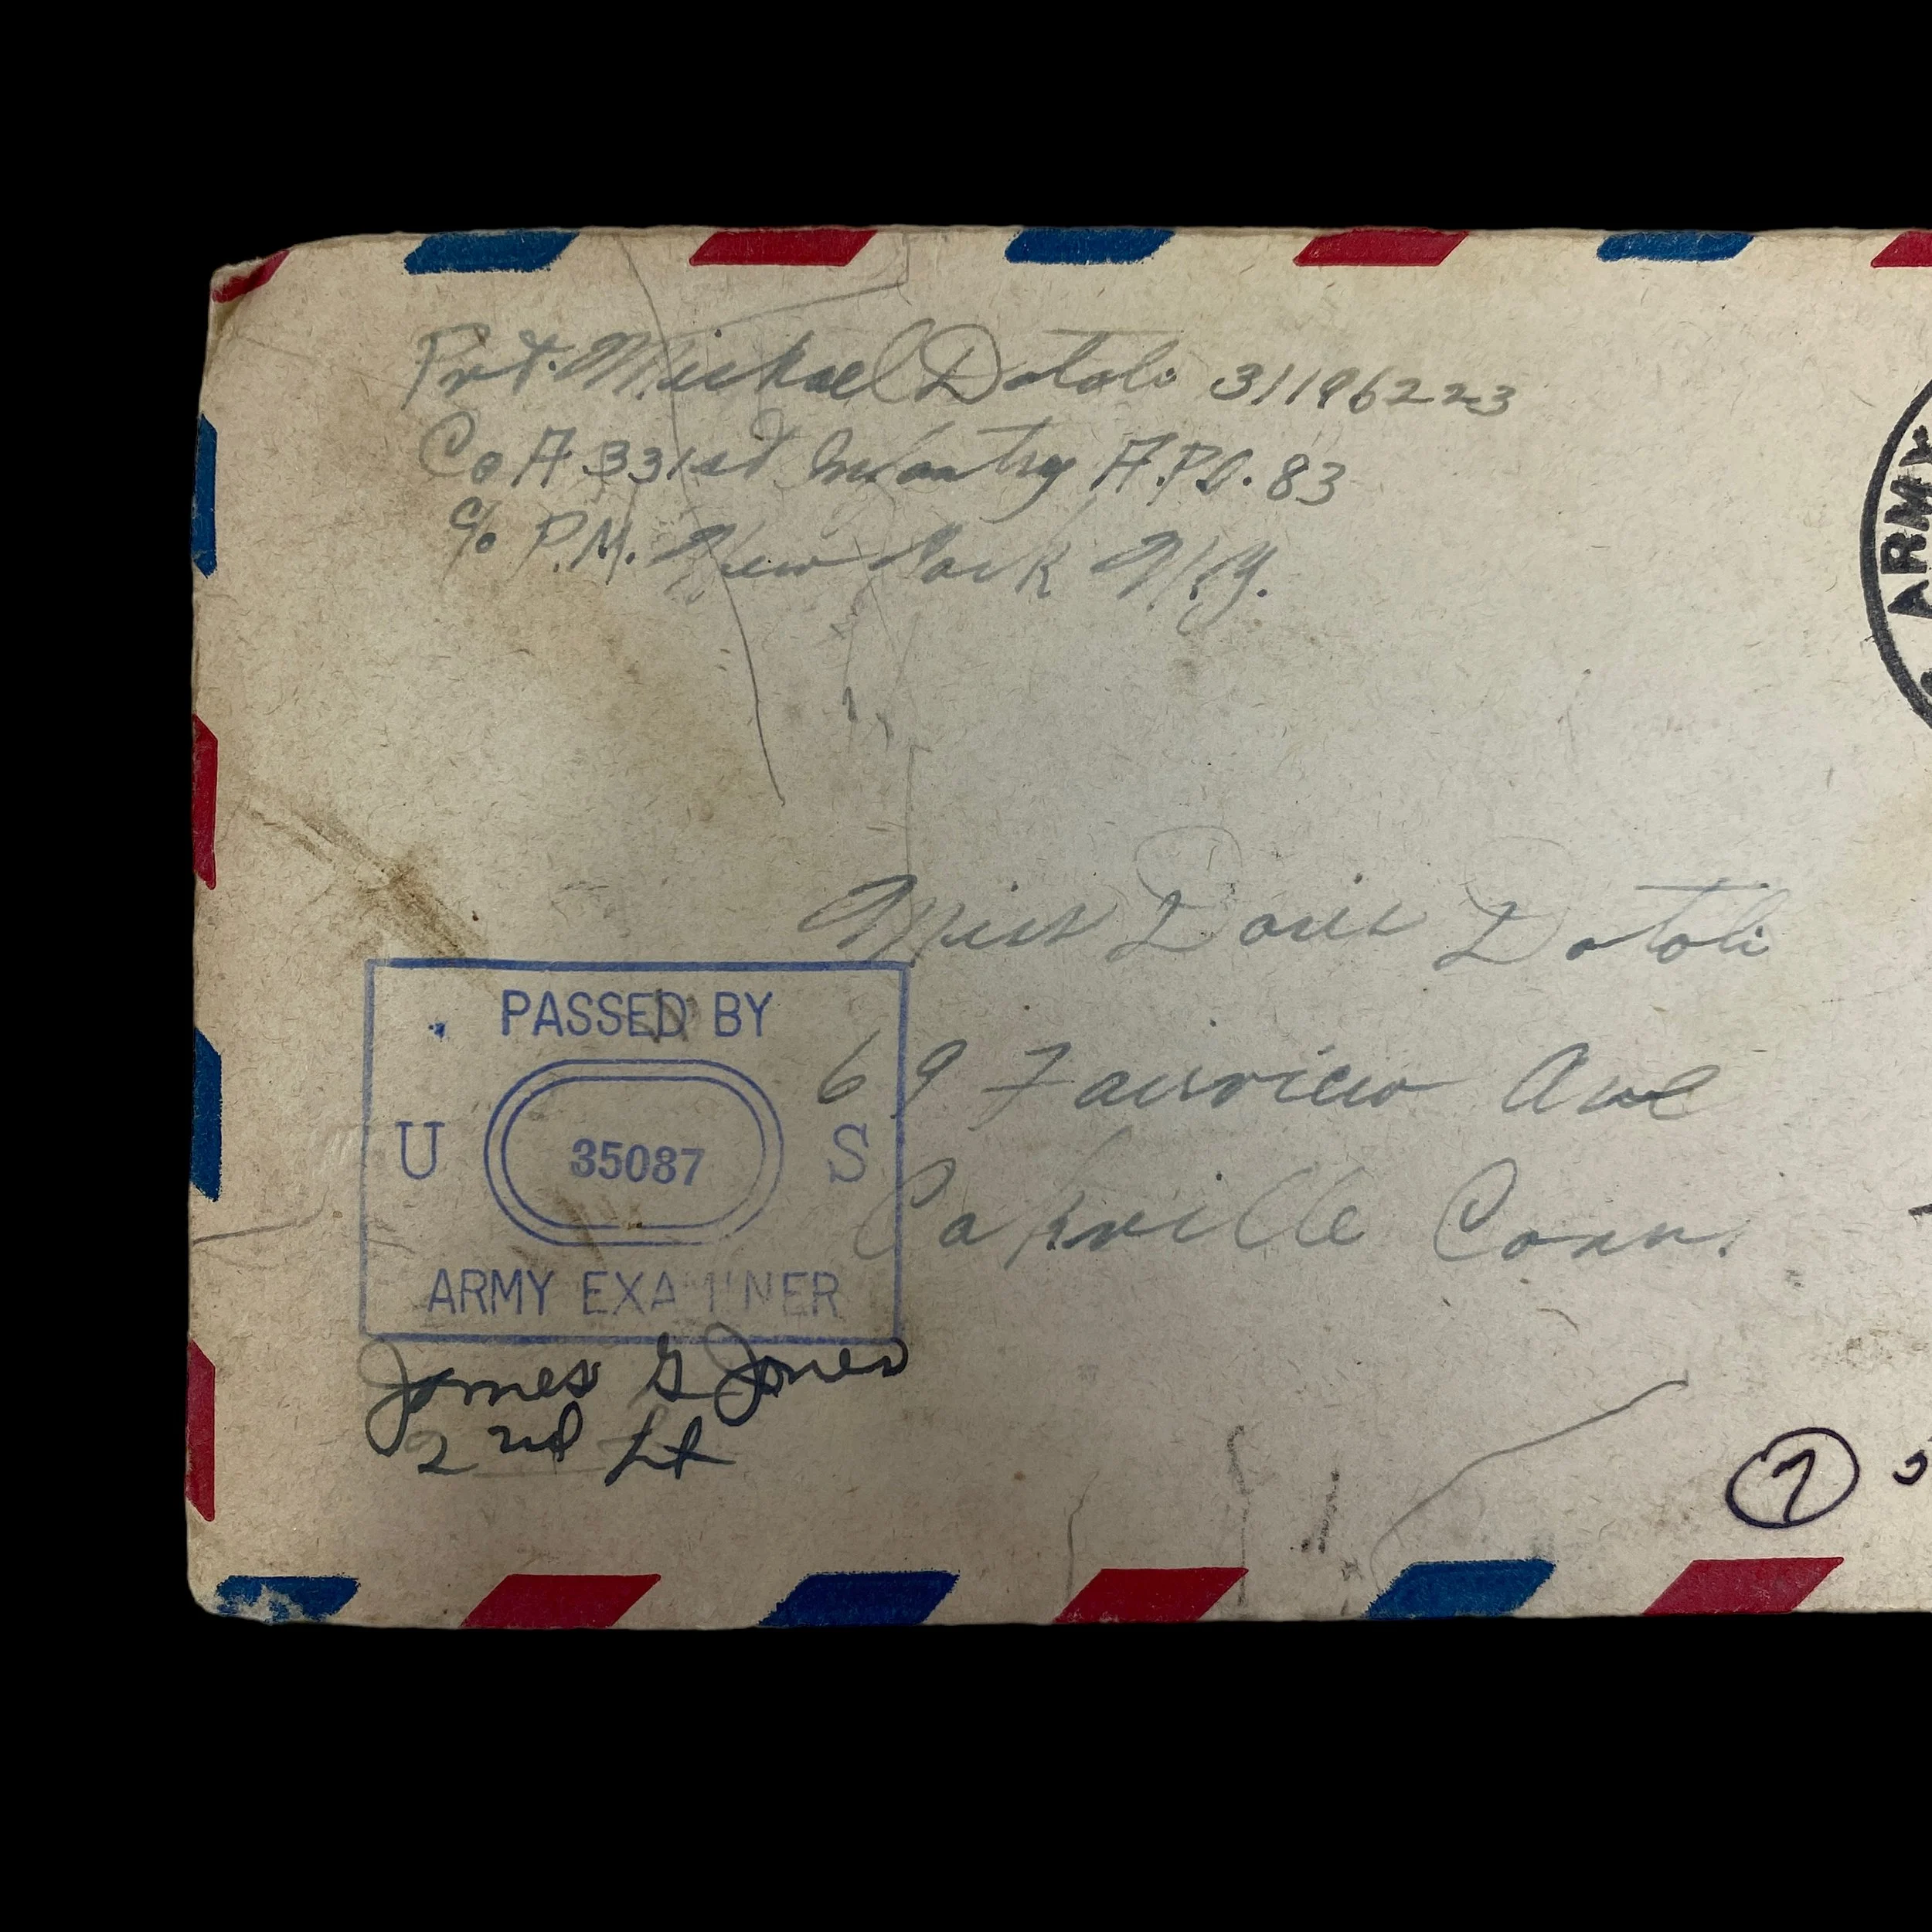 Pvt. Michael Datoli 31196223
Co A 331st Infantry A.P.O. 83
c/o P.M. New York N.Y.
ARMY
Miss Doris Datoli
69 Fairview Ave
Oakville Conn.
PASSED BY
U 35087 S
ARMY EXAMINER
James G Jones
2nd Lt